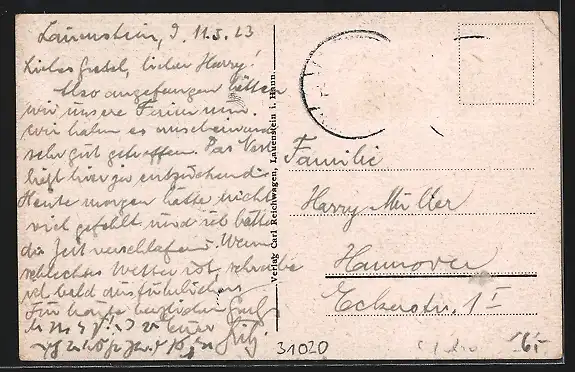 Lauenstein, d. 11.5.23
Liebes Gretel, lieber Harry!
Also angefangen hätten
wir unsere Ferien nun.
Wir haben es anscheinend
sehr gut getroffen. Das Nest
liegt hier ja entzückend.
Heute morgen hätte nicht
viel gefehlt und ich hätte
die Zeit verschlafen. Wenn
schlechtes Wetter ist, schreibe
ich bald ausführlicher.
Für heute herzlichen Gruß
Euer
Fritz
Verlag Carl Reichwagen, Lauenstein i. Hann.
Familie
Harry Müller
Hannover
Eckerstr. 1 I
31020